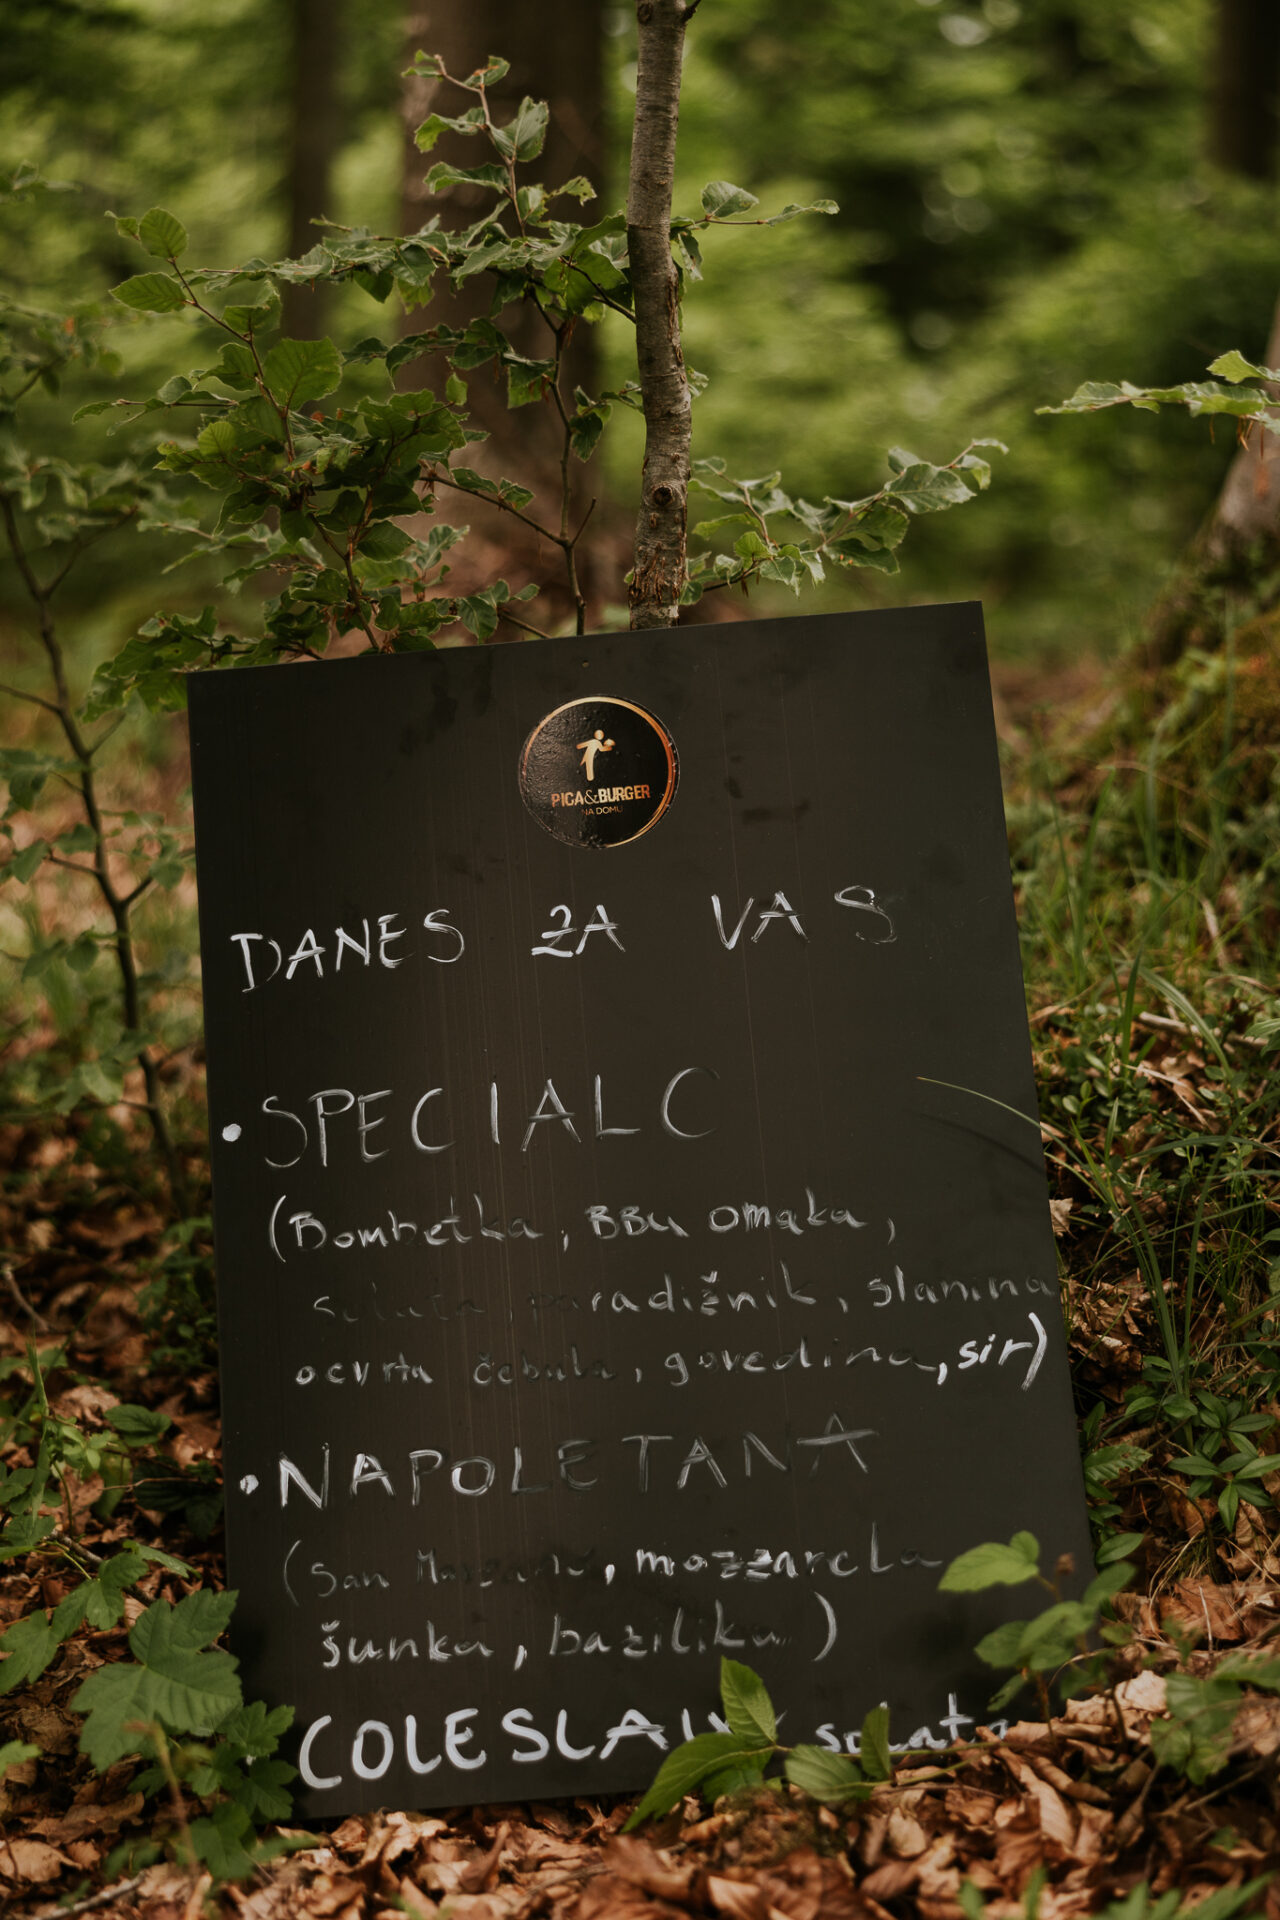 PICA&BURGER
NA DOMU
DANES ZA VAS
• SPECIALC
(Bombetka, BBQ omaka,
solata, paradižnik, slanina
ocvrta čebula, govedina, sir)
• NAPOLETANA
(San Marzano, mozzarela
šunka, bazilika)
COLESLAW solata